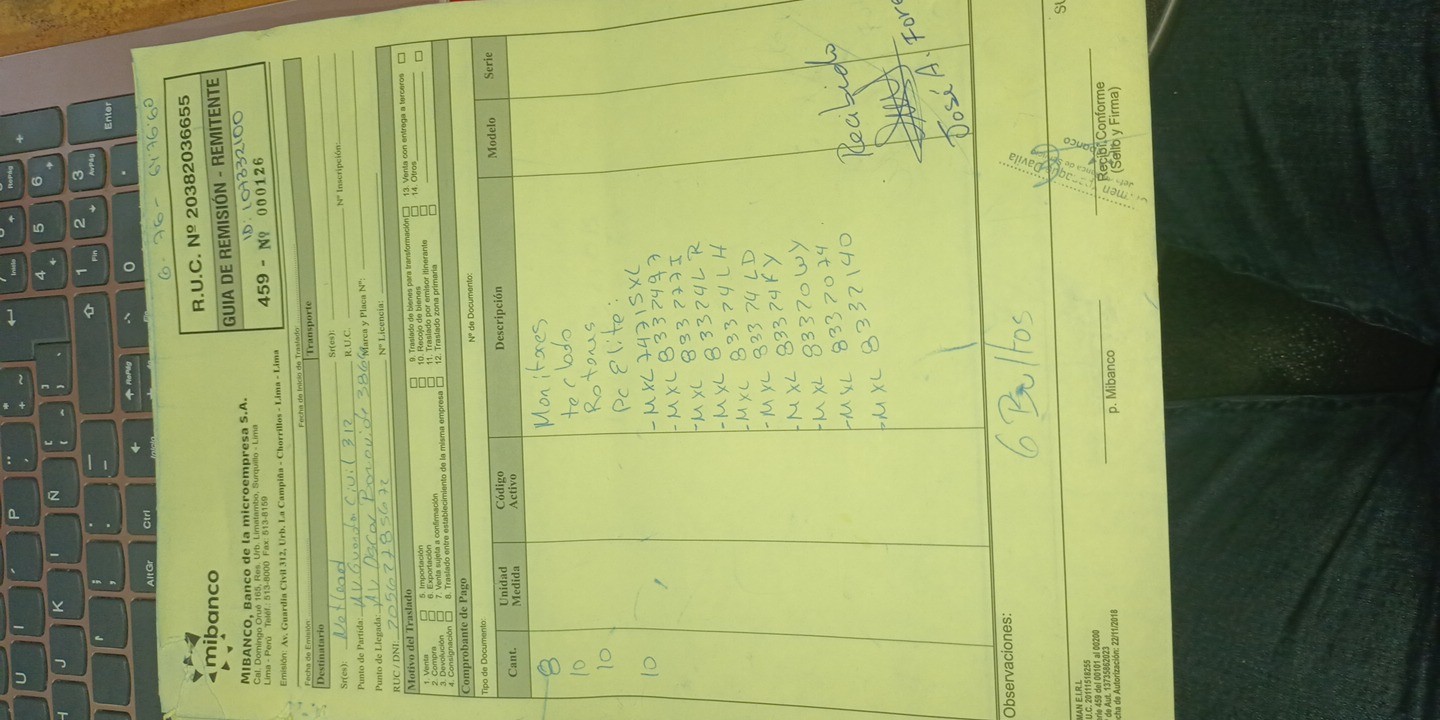 mibanco
MIBANCO, Banco de la microempresa S.A.
Cal. Domingo Orué 165, Res. Urb. Limatambo, Surquillo - Lima
Lima - Perú Telef.: 513-8000 Fax: 513-8159
Emisión: Av. Guardia Civil 312, Urb. La Campiña - Chorrillos - Lima - Lima
R.U.C. Nº 20382036655
GUIA DE REMISIÓN - REMITENTE
ID: 107332100
459 - Nº 000126
Fecha de Emisión:
Fecha de Inicio de Traslado:
Destinatario
Transporte
Sr(es): Netlead
Sr(es):
Nº Inscripción:
Punto de Partida: AV Guardia Civil 312
R.U.C.
Punto de Llegada: AV Oscar
Marca y Placa Nº:
RUC / DNI: 20562785672
Nº Licencia:
Motivo del Traslado
1. Venta
2. Compra
3. Devolución
4. Consignación
5. Importación
6. Exportación
7. Venta sujeta a confirmación
8. Traslado entre establecimiento de la misma empresa
9. Traslado de bienes para transformación
10. Recojo de bienes
11. Traslado por emisor itinerante
12. Traslado zona primaria
13. Venta con entrega a terceros
14. Otros
Comprobante de Pago
Tipo de Documento:
Nº de Documento:
Cant. Unidad Medida Código Activo Descripción Modelo Serie
8 Monitores
10 teclado
10
10 PC Elite:
- MXL 7471SXL
- MXL 8337497
- MXL 833777I
- MXL 83374LR
- MXL 83374LH
- MXL 83374LD
- MXL 83374KY
- MXL 83370WY
- MXL 8337074
- MXL 8337140
Recibido
José A.
6 Bultos
Observaciones:
p. Mibanco
Recibí Conforme
(Sello y Firma)
MAN E.I.R.L
U.C. 20111518255
rie 459 del 00101 al 00200
de Aut. 13735862023
cha de Autorización: 22/11/2018